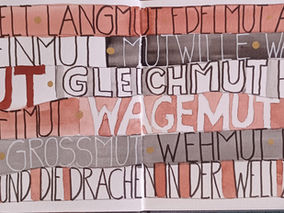 LANGMUT EDELMUT
MUT MUTWILLE
MUT GLEICHMUT
MUT WAGEMUT
GROSSMUT WEHMUT
UND DIE DRACHEN IN DER WELT